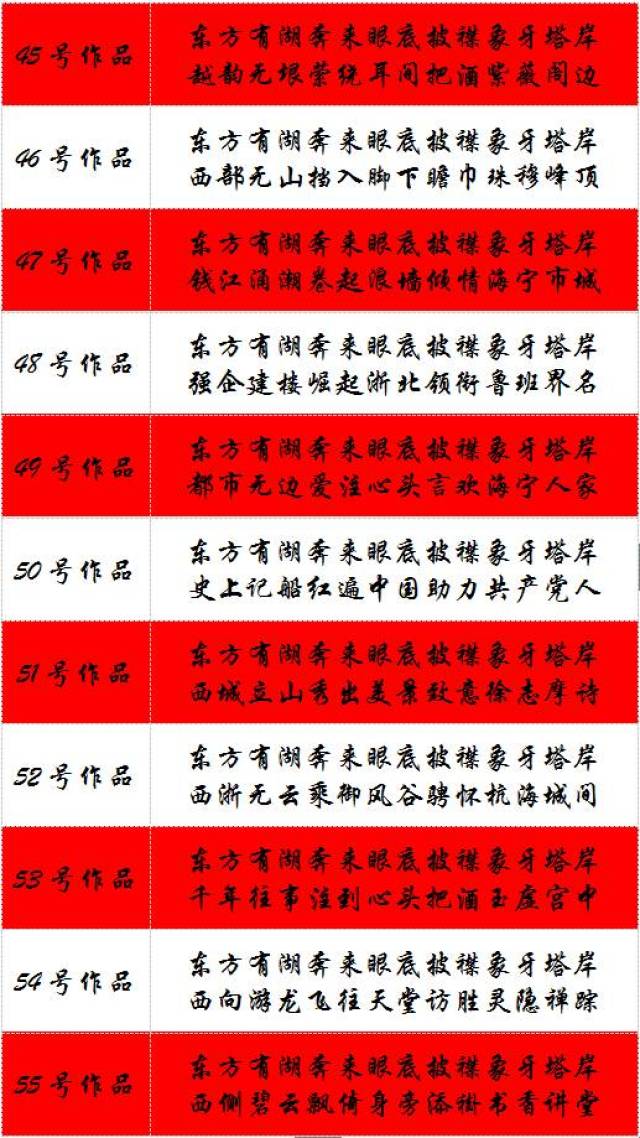 45号作品
东方有湖奔来眼底披襟象牙塔岸
越韵无垠萦绕耳间把酒紫薇阁边
46号作品
东方有湖奔来眼底披襟象牙塔岸
西部无山挡入脚下瞻巾珠穆峰顶
47号作品
东方有湖奔来眼底披襟象牙塔岸
钱江涌潮卷起浪墙倾情海宁市城
48号作品
东方有湖奔来眼底披襟象牙塔岸
强企建楼崛起浙北领衔鲁班界名
49号作品
东方有湖奔来眼底披襟象牙塔岸
都市无边爱注心头言欢海宁人家
50号作品
东方有湖奔来眼底披襟象牙塔岸
史上记船红遍中国助力共产党人
51号作品
东方有湖奔来眼底披襟象牙塔岸
西城立山秀出美景致意徐志摩诗
52号作品
东方有湖奔来眼底披襟象牙塔岸
西浙无云乘御风谷骋怀杭海城间
53号作品
东方有湖奔来眼底披襟象牙塔岸
千年往事注到心头把酒玉虚宫中
54号作品
东方有湖奔来眼底披襟象牙塔岸
西向游龙飞往天堂访胜灵隐禅踪
55号作品
东方有湖奔来眼底披襟象牙塔岸
西侧碧云飘倚身旁添褂书香讲堂